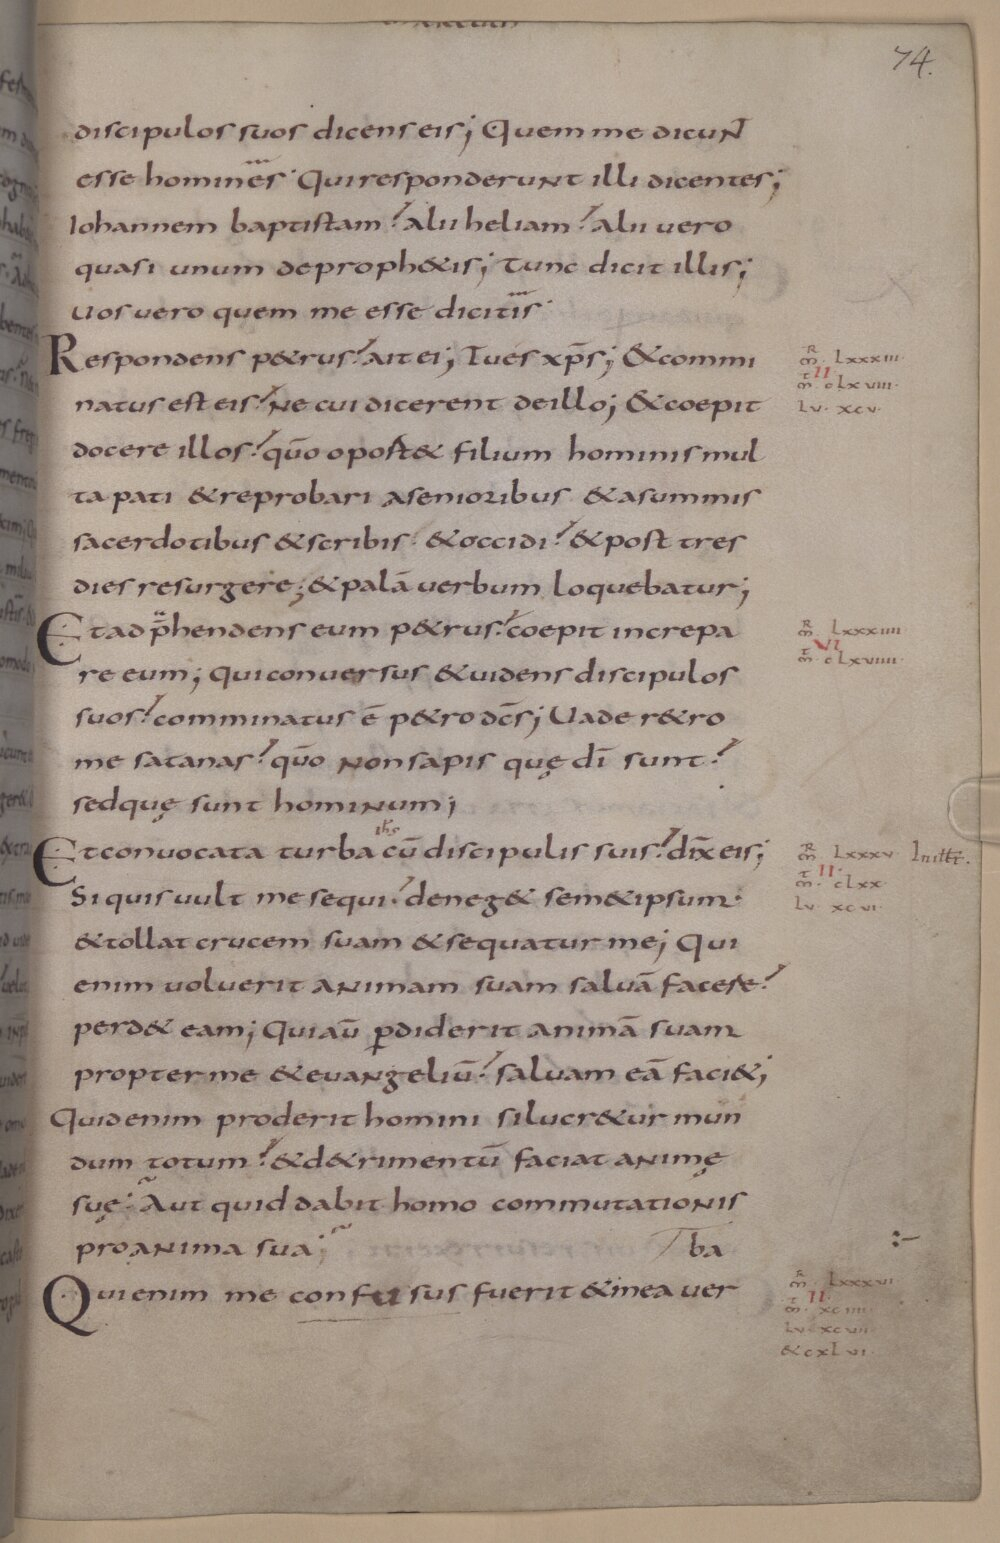 74.
discipulos suos dicens eis; Quem me dicuNT
esse homines· Qui responderunt illi dicentes;
Iohannem baptistam· alii heliam· alii vero
quasi unum de proph&is; Tunc dicit illis;
Uos vero quem me esse dicitis·
Respondens p&rus· ait ei; Tu es xp̄s; &commi
natus est eis· Ne cui dicerent de illo; &coepit
docere illos· qūo oport& filium hominis mul
ta pati &reprobari a senioribus &a summis
sacerdotibus &scribis· &occidi· &post tres
dies resurgere; &palā verbum loquebatur;
Et adp̄hendens eum p&rus· coepit increpa
re eum; Qui conversus &videns discipulos
suos· comminatus ē p&ro dc̄s; Uade r&ro
me satanas· qūo Non sapis quę dī sunt·
sed quę sunt hominum;
ih̄s
Et convocata turba cū discipulis suis· dix̄ eis;
Si quis vult me sequi· deneg& sem&ipsum·
&tollat crucem suam &sequatur me; Qui
enim voluerit animam suam salvā facere·
perd& eam; Qui aū p̄diderit animā suam
propter me &evangeliū· salvam eā faci&;
Quid enim proderit homini si lucr&ur mun
dum totum· &d&rimentū faciat animę
suę· Aut quid dabit homo commutationis
pro anima sua;
ba
Qui enim me confusus fuerit &mea ver
R
m̄· Lxxxiii·
t II
m̄· cLxviii·
Lu· xcv·
R
m̄· Lxxxiiii·
t VI
m̄· cLxviiii·
R
m̄· Lxxxv·
t II·
m̄· cLxx·
Lu· xcvi·
R
m̄· Lxxxvi·
t II·
m̄· xciiii·
Lu· xcvii·
&cxLvi·